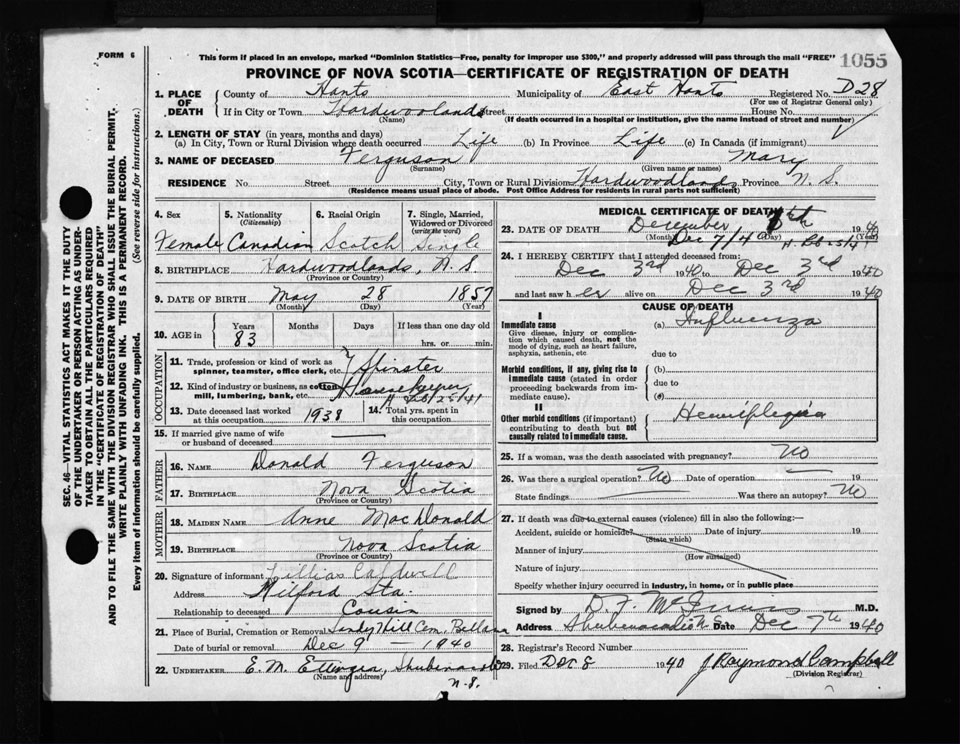 FORM 6
This form if placed in an envelope, marked "Dominion Statistics—Free, penalty for improper use $300," and properly addressed will pass through the mail "FREE"
1055
PROVINCE OF NOVA SCOTIA—CERTIFICATE OF REGISTRATION OF DEATH
1. PLACE OF DEATH County of Hants Municipality of East Hants Registered No. D28
(For use of Registrar General only)
If in City or Town Hardwoodlands Street House No.
(Name) (If death occurred in a hospital or institution, give the name instead of street and number)
2. LENGTH OF STAY (in years, months and days)
(a) In City, Town or Rural Division where death occurred Life (b) In Province Life (c) In Canada (if immigrant)
3. NAME OF DECEASED Ferguson Mary
(Surname) (Given name or names)
RESIDENCE No. Street City, Town or Rural Division Hardwoodlands Province N. S.
(Residence means usual place of abode. Post Office Address for residents in rural parts not sufficient)
4. Sex 5. Nationality (Citizenship) 6. Racial Origin 7. Single, Married, Widowed or Divorced (write the word)
Female Canadian Scotch Single
8. BIRTHPLACE Hardwoodlands, N. S
(Province or Country)
9. DATE OF BIRTH May 28 1857
(Month) (Day) (Year)
10. AGE in Years Months Days If less than one day old
83 hrs. or min.
OCCUPATION
11. Trade, profession or kind of work as spinner, teamster, office clerk, etc. Spinster
12. Kind of industry or business, as cotton mill, lumbering, bank, etc. Housekeeper
H Feb 25/41
13. Date deceased last worked at this occupation 1938 14. Total yrs. spent in this occupation
15. If married give name of wife or husband of deceased
FATHER
16. NAME Donald Ferguson
17. BIRTHPLACE Nova Scotia
(Province or Country)
MOTHER
18. MAIDEN NAME Anne MacDonald
19. BIRTHPLACE Nova Scotia
(Province or Country)
20. Signature of informant Lillias Caldwell
Address Milford Sta.
Relationship to deceased Cousin
21. Place of Burial, Cremation or Removal Hill Cem.
Date of burial or removal Dec 9 — 1940
22. UNDERTAKER E. M. Shubenacadie
(Name and address) N.S.
MEDICAL CERTIFICATE OF DEATH
23. DATE OF DEATH December 7th 1940
(Month) (Day) (Year)
Dec 7/40 H. Feb 25/41
24. I HEREBY CERTIFY that I attended deceased from:
Dec 3rd 1940 to Dec 3rd 1940
and last saw her alive on Dec 3rd 1940
CAUSE OF DEATH
I
Immediate cause
Give disease, injury or complication which caused death, not the mode of dying, such as heart failure, asphyxia, asthenia, etc
(a) Influenza
due to
Morbid conditions, if any, giving rise to immediate cause (stated in order proceeding backwards from immediate cause).
(b)
due to
(c)
II
Other morbid conditions (if important) contributing to death but not causally related to immediate cause.
Hemiplegia
25. If a woman, was the death associated with pregnancy? No
26. Was there a surgical operation? No Date of operation 19
State findings Was there an autopsy? No
27. If death was due to external causes (violence) fill in also the following:—
Accident, suicide or homicide? Date of injury 19
(State which)
Manner of injury
(How sustained)
Nature of injury
Specify whether injury occurred in industry, in home, or in public place
Signed by D. F. M.D.
Address Shubenacadie N.S. Date Dec 7th 1940
28. Registrar's Record Number
29. Filed DEC 8 1940 J Raymond Campbell
(Division Registrar)
SEC. 46—VITAL STATISTICS ACT MAKES IT THE DUTY OF THE UNDERTAKER OR PERSON ACTING AS UNDERTAKER TO OBTAIN ALL THE PARTICULARS REQUIRED IN THE "CERTIFICATE OF REGISTRATION OF DEATH" AND TO FILE THE SAME WITH THE DIVISION REGISTRAR WHO SHALL ISSUE THE BURIAL PERMIT.
WRITE PLAINLY WITH UNFADING INK. THIS IS A PERMANENT RECORD.
Every item of information should be carefully supplied. (See reverse side for instructions.)